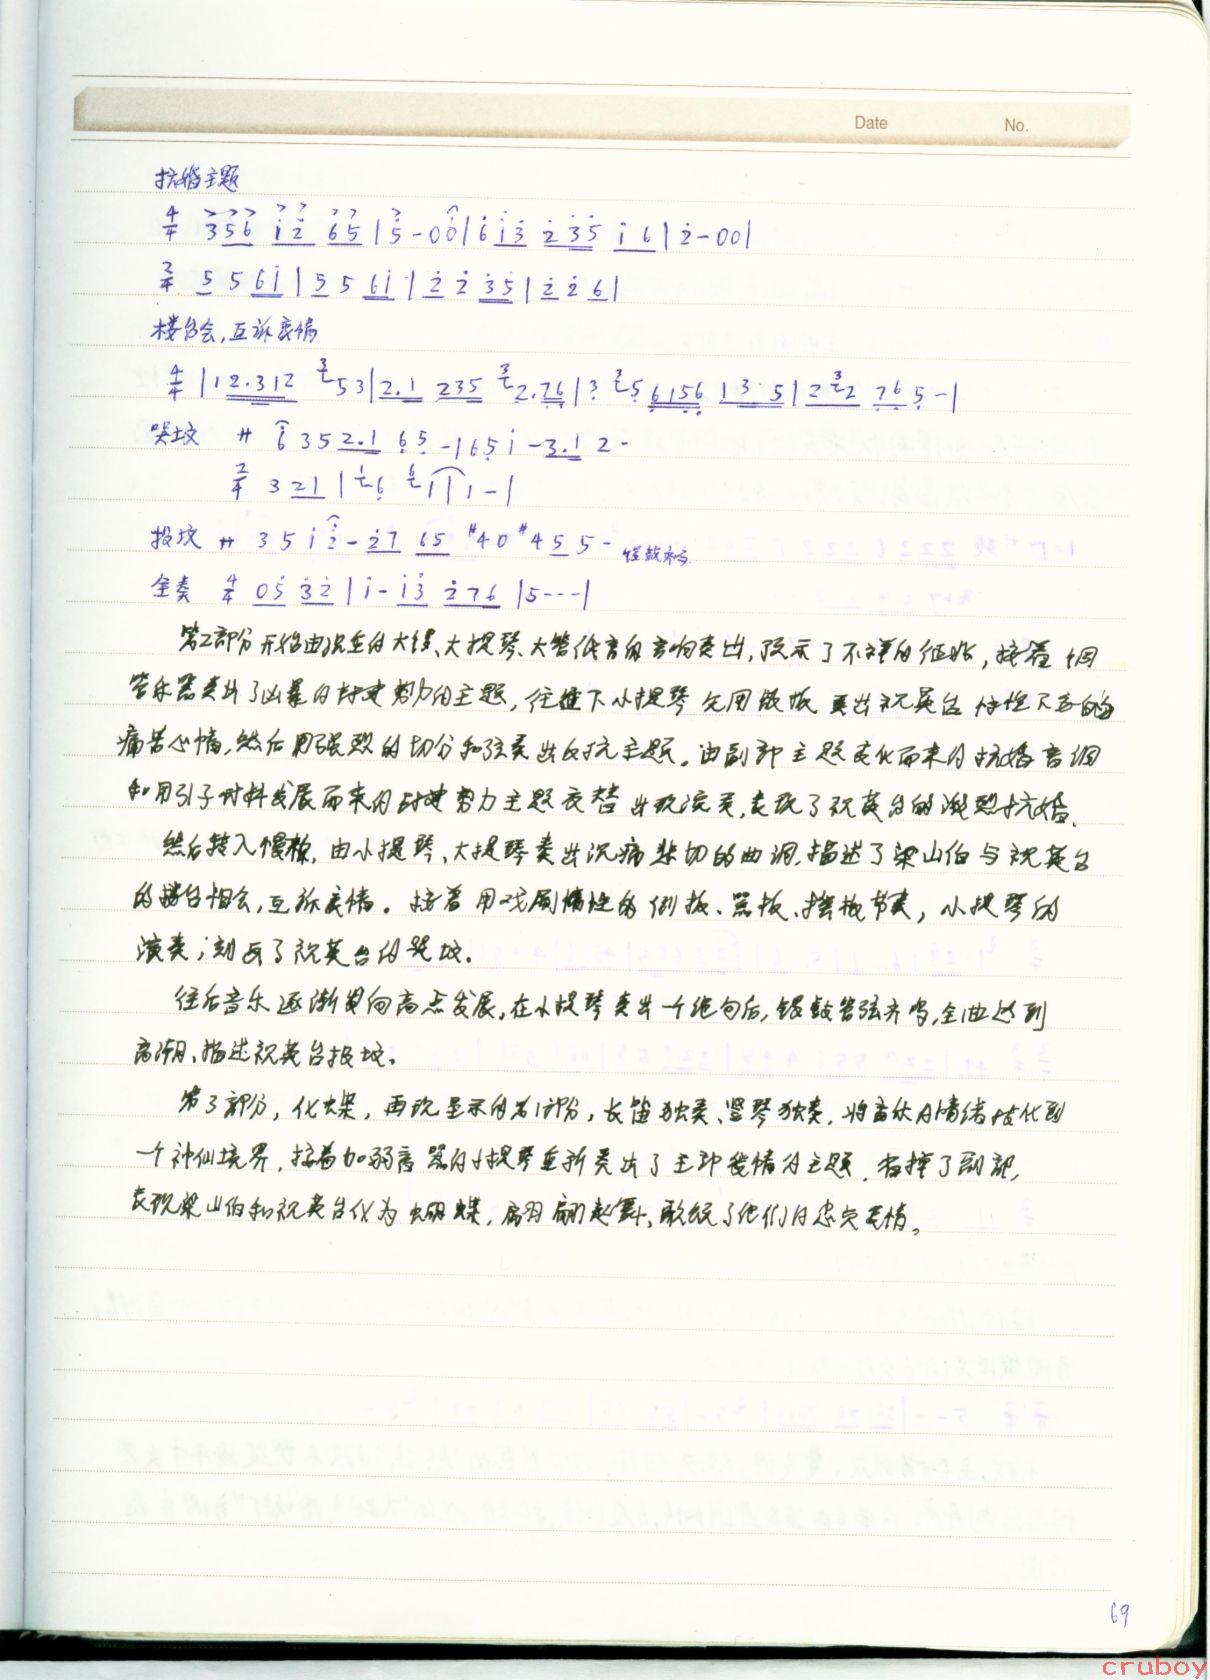 Date No.
抗婚主题
4/4 356 i2 65 | 5 - 00 | 6 i3 2 35 i 6 | 2 - 00 |
2/4 5 5 6i | 5 5 6i | 2 2 35 | 2 2 6 |
楼台会,互诉衷情
4/4 | 12.312 53 | 2.1 235 2.76 | 3 5 6156 13 5 | 2 2 765 - |
哭坟 サ 6 3 5 2.1 65 - 165 i - 3.1 2 -
2/4 3 21 | 6 1 | 1 - |
投坟 サ 3 5 i 2 - 27 65 #40 #4 5 5 -
全奏 4/4 05 32 | i - i3 276 | 5 - - - |
第2部分开始由沉重的大锣、大提琴、大管低音的音响奏出,预示了不祥的征兆,接着 铜
管乐器奏出了凶暴的封建势力的主题,往继下小提琴先用散板 奏出祝英台 不安的
痛苦心情,然后用强烈的切分和弦奏出反抗主题。由副部主题变化而来的抗婚音调
和用引子材料发展而来的封建势力主题交替出现演奏,表现了祝英台的激烈抗婚.
然后转入慢板,由小提琴、大提琴奏出沉痛悲切的曲调,描述了梁山伯与祝英台
的楼台相会,互诉衷情。接着用戏剧情性的倒板、嚣板、摇板节奏,小提琴的
演奏;刻画了祝英台的哭坟.
往后音乐逐渐负向高点发展,在小提琴奏出一个绝句后,锣鼓管弦齐鸣,全曲达到
高潮、描述祝英台投坟.
第3部分,化蝶,再现显示的第1部分,长笛独奏、竖琴独奏,将音乐的情绪 化到
一个神仙境界,接着加弱音器的小提琴重新奏出了主部爱情的主题,省掉了副部,
表现梁山伯和祝英台化为蝴蝶,翩翩起舞,歌颂了他们的忠贞爱情。
69
cruboy